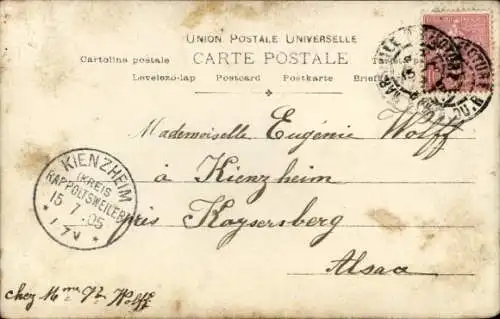 UNION POSTALE UNIVERSELLE
CARTE POSTALE
Cartolina postale
Levelező-lap Postcard Postkarte Brief
Mademoiselle Eugénie Wolff
à Kienzheim
près Kaysersberg
Alsace
chez Mme Wolff
KIENZHEIM
(KREIS
RAPPOLTSWEILER)
15 7 05